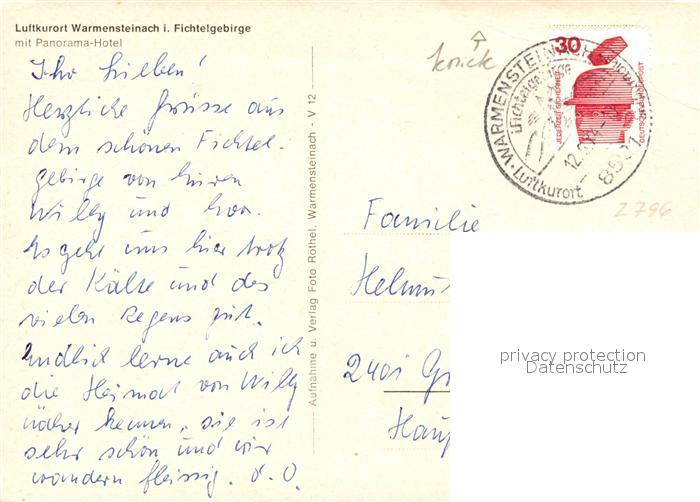 Luftkurort Warmensteinach i. Fichtelgebirge
mit Panorama-Hotel
Ihr Lieben!
Herzliche Grüsse aus
dem schönen Fichtel-
gebirge von
Willy und
Es geht uns hier trotz
der Kälte und des
vielen Regens gut.
Endlich lerne auch ich
die Heimat von Willy
näher kennen. sie ist
sehr schön und wir
wandern fleissig. d. O.
Aufnahme u. Verlag Foto Röthel, Warmensteinach - V 12
30
JEDERZEIT SICHERHEIT
DEUTSCHE BUNDESPOST
WARMENSTEINACH
Fichtelgebirge
Luftkurort
2796
Familie
Helmu
2401 Gr
Haup
privacy protection
Datenschutz